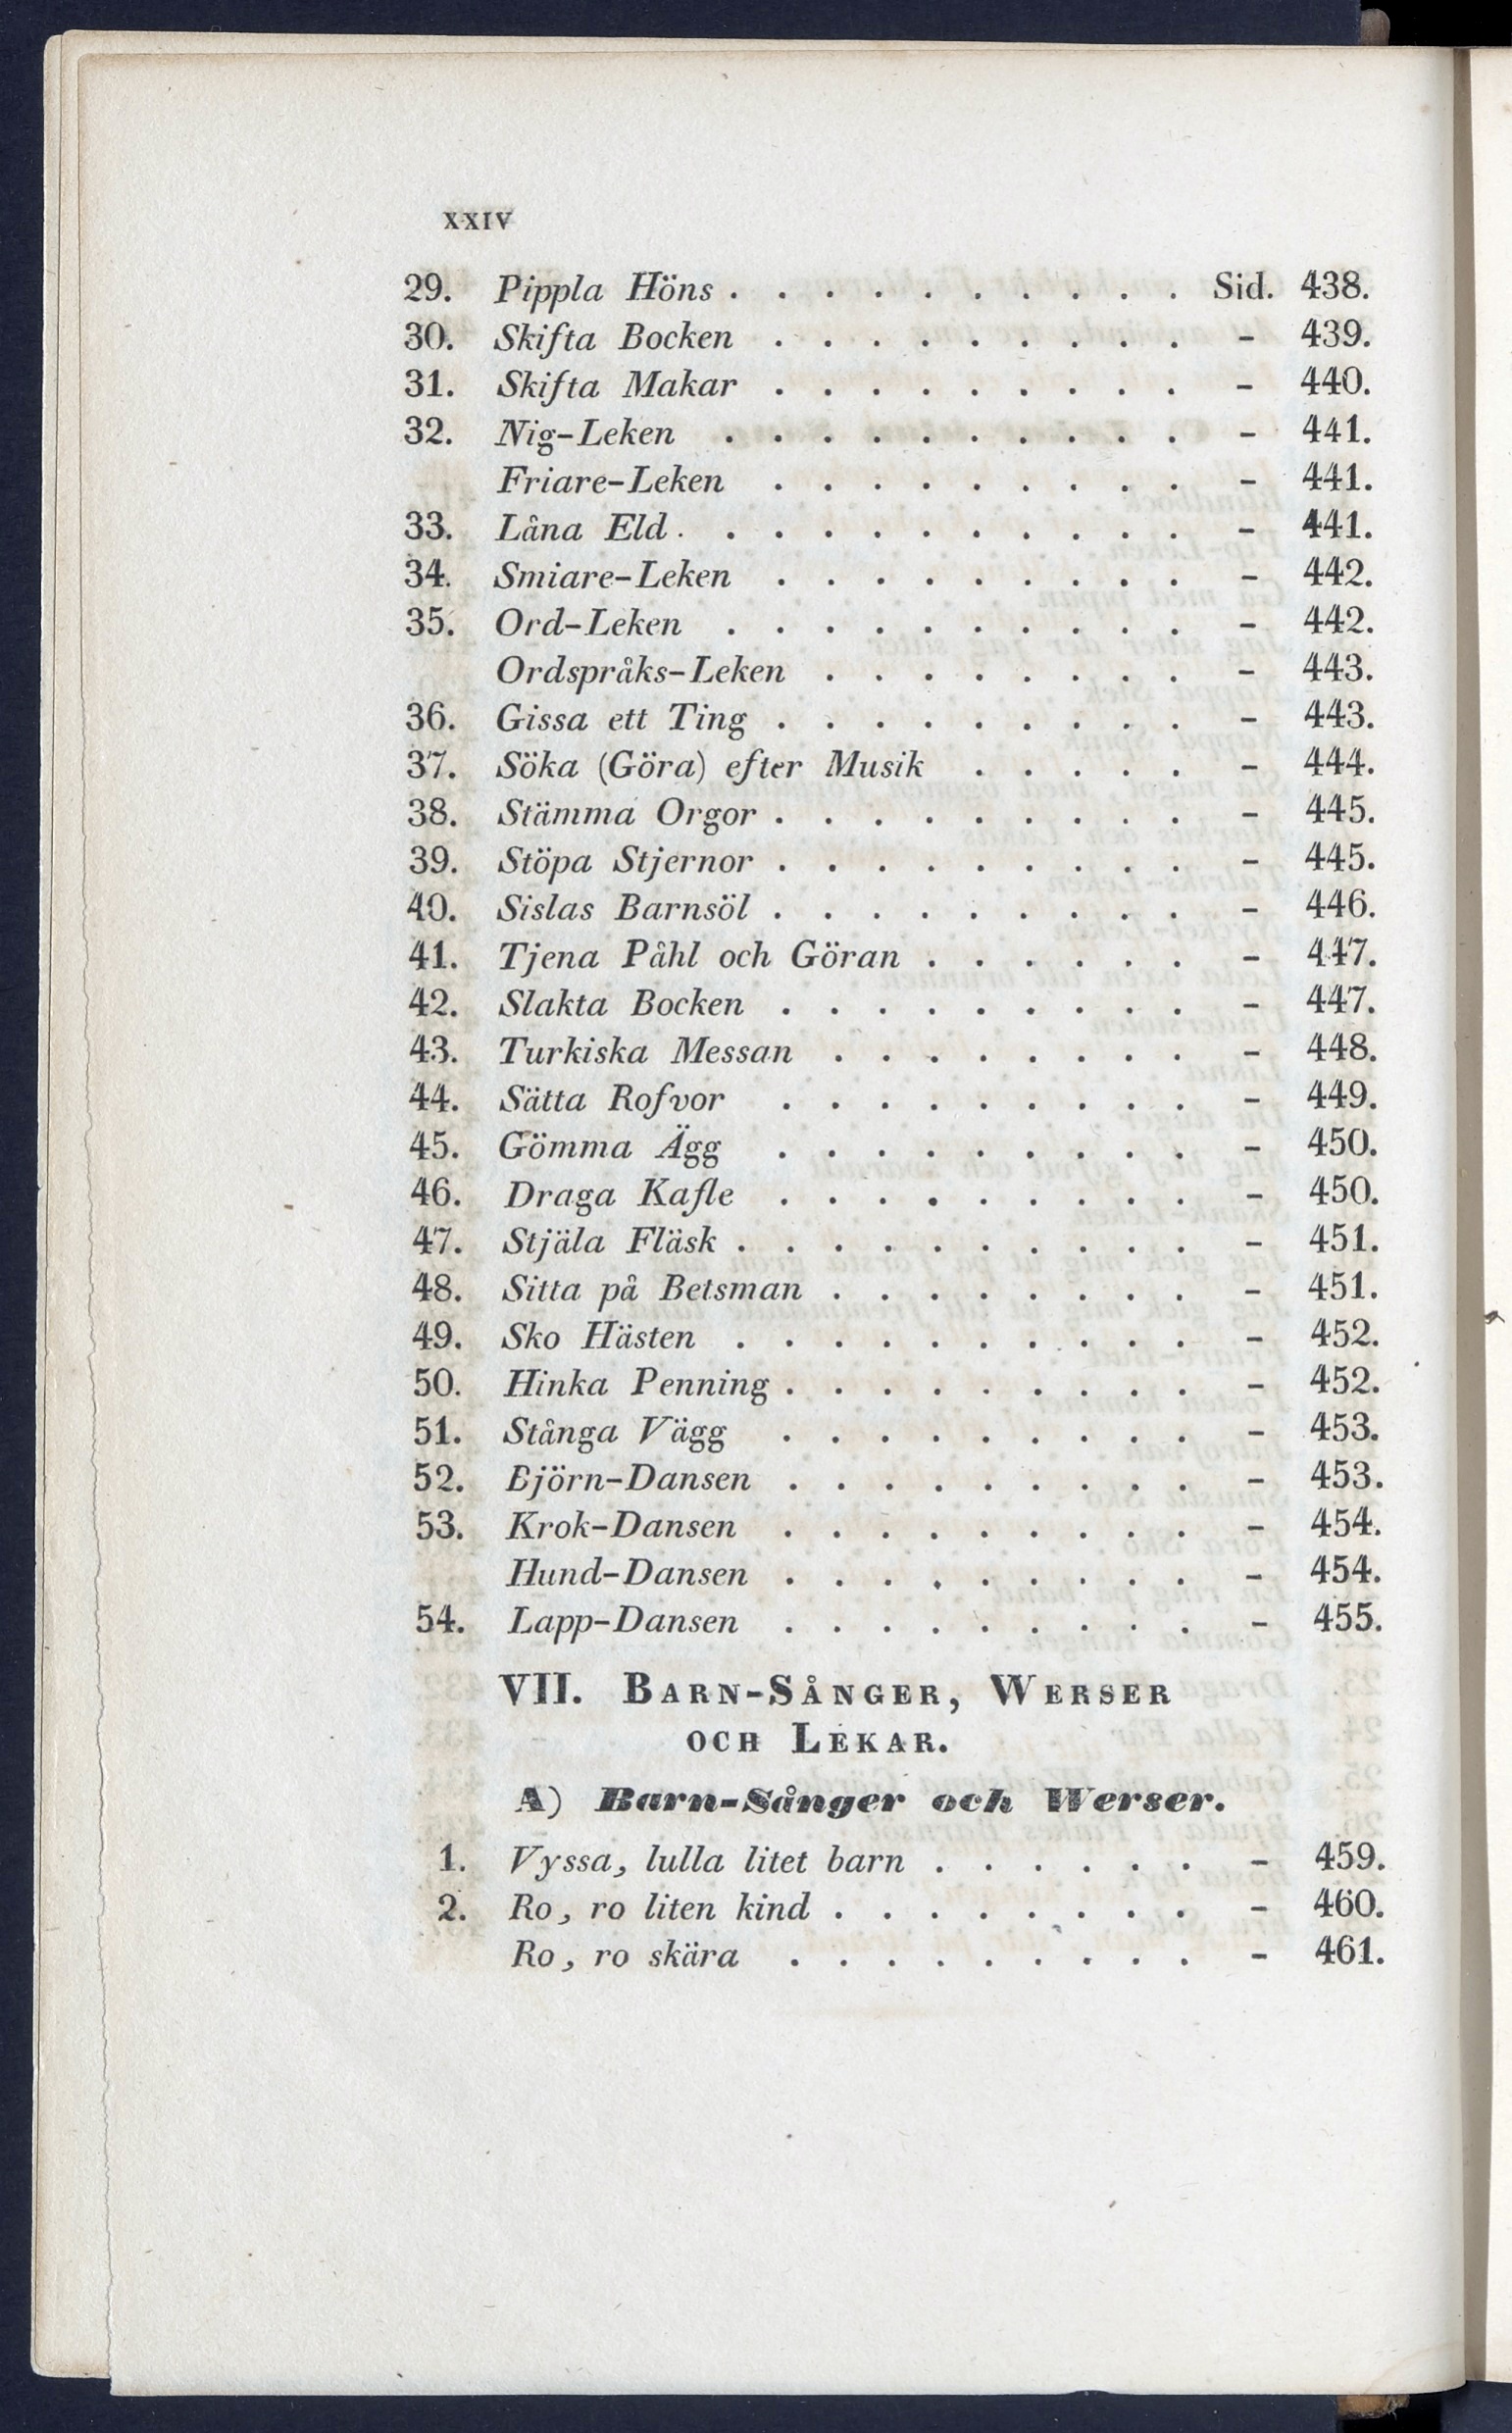 XXIV
29. Pippla Höns . . . . . . . . . . Sid. 438.
30. Skifta Bocken . . . . . . . . . - 439.
31. Skifta Makar . . . . . . . . . - 440.
32. Nig-Leken . . . . . . . . . . - 441.
Friare-Leken . . . . . . . . . - 441.
33. Låna Eld . . . . . . . . . . . - 441.
34. Smiare-Leken . . . . . . . . . - 442.
35. Ord-Leken . . . . . . . . . . - 442.
Ordspråks-Leken . . . . . . . . - 443.
36. Gissa ett Ting . . . . . . . . . - 443.
37. Söka (Göra) efter Musik . . . . . - 444.
38. Stämma Orgor . . . . . . . . . - 445.
39. Stöpa Stjernor . . . . . . . . . - 445.
40. Sislas Barnsöl . . . . . . . . . - 446.
41. Tjena Påhl och Göran . . . . . . - 447.
42. Slakta Bocken . . . . . . . . . - 447.
43. Turkiska Messan . . . . . . . . - 448.
44. Sätta Rofvor . . . . . . . . . - 449.
45. Gömma Ägg . . . . . . . . . - 450.
46. Draga Kafle . . . . . . . . . - 450.
47. Stjäla Fläsk . . . . . . . . . . - 451.
48. Sitta på Betsman . . . . . . . . - 451.
49. Sko Hästen . . . . . . . . . . - 452.
50. Hinka Penning . . . . . . . . . - 452.
51. Stånga Vägg . . . . . . . . . - 453.
52. Björn-Dansen . . . . . . . . . - 453.
53. Krok-Dansen . . . . . . . . . - 454.
Hund-Dansen . . . . . . . . . - 454.
54. Lapp-Dansen . . . . . . . . . - 455.
VII. BARN-SÅNGER, WERSER
OCH LEKAR.
A) Barn-Sånger och Werser.
1. Vyssa, lulla litet barn . . . . . . - 459.
2. Ro, ro liten kind . . . . . . . . - 460.
Ro, ro skära . . . . . . . . . - 461.